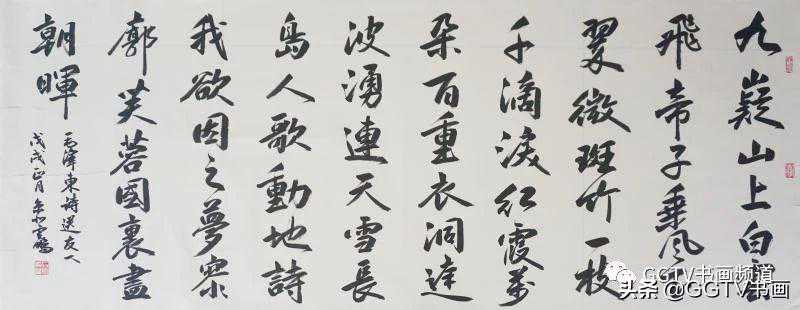 九嶷山上白雲
飛帝子乘风
翠微斑竹一枝
千滴淚红霞萬
朵百重衣洞庭
波湧連天雪長
島人歌動地詩
我欲因之夢寥
廓芙蓉國裏盡
朝暉
毛澤東詩送友人
戊戌正月
GGTV书画频道
头条 @GGTV书画